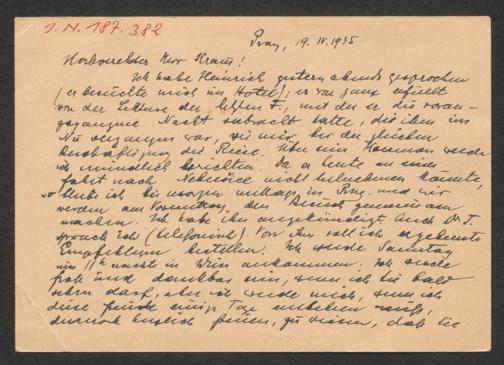 I.N. 187.382
Prag, 19. IV. 1935
Hochverehrter Herr Kraus!
Ich habe Heinrich gestern abends gesprochen
(er besuchte mich im Hotel); er war ganz erfüllt
von der Lektüre der letzten F., mit der er die voran-
gegangene Nacht verbracht hatte, die ihm im
Nu vergangen war, wie mir, bei der gleichen
Beschäftigung die Reise. Über sein Kommen werde
ich mündlich berichten. Da er heute an einer
Fahrt nach nicht teilnehmen konnte,
bleibe ich bis morgen mittags in Prag und wir
werden am Vormittag den Besuch gemeinsam
machen. Ich habe ihn angekündigt. Auch Dr. J.
sprach ich (telefonisch). Von ihm soll ich ergebenste
Empfehlungen bestellen. Ich werde Samstag
um 11h nachts in Wien ankommen. Ich werde
froh und dankbar sein, wenn ich Sie bald
sehen darf, aber ich werde mich, wenn ich
diese Freude einige Tage entbehren muß,
dennoch herzlich freuen, zu wissen, daß Sie